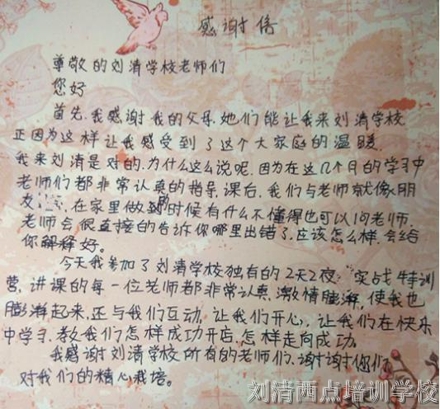 感谢信
尊敬的刘清学校老师们
您好
首先,我感谢我的父母,她们能让我来刘清学校
正因为这样让我感受到了这个大家庭的温暖
我来刘清是对的,为什么这么说呢,因为在这几个月的学习中
老师们都非常认真的指导,课后,我们与老师就像朋
友 在家里做到的时候有什么不懂得也可以问老师,
老师会很直接的告诉你哪里出错了,应该怎么样,会给
你解释好。
今天我参加了刘清学校独有的2天2夜 实战特训
营,讲课的每一位老师都非常认真,激情膨湃,使我也
膨湃起来,还与我们互动,让我们开心,让我们在快乐
中学习,教我们怎样成功开店,怎样走向成功
我感谢刘清学校所有的老师们,谢谢你们
对我们的精心栽培。
刘清西点培训学校